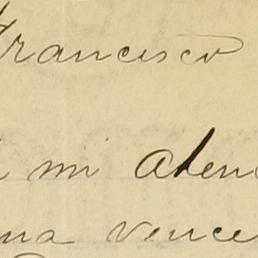 Francisco
mi aten
na vence